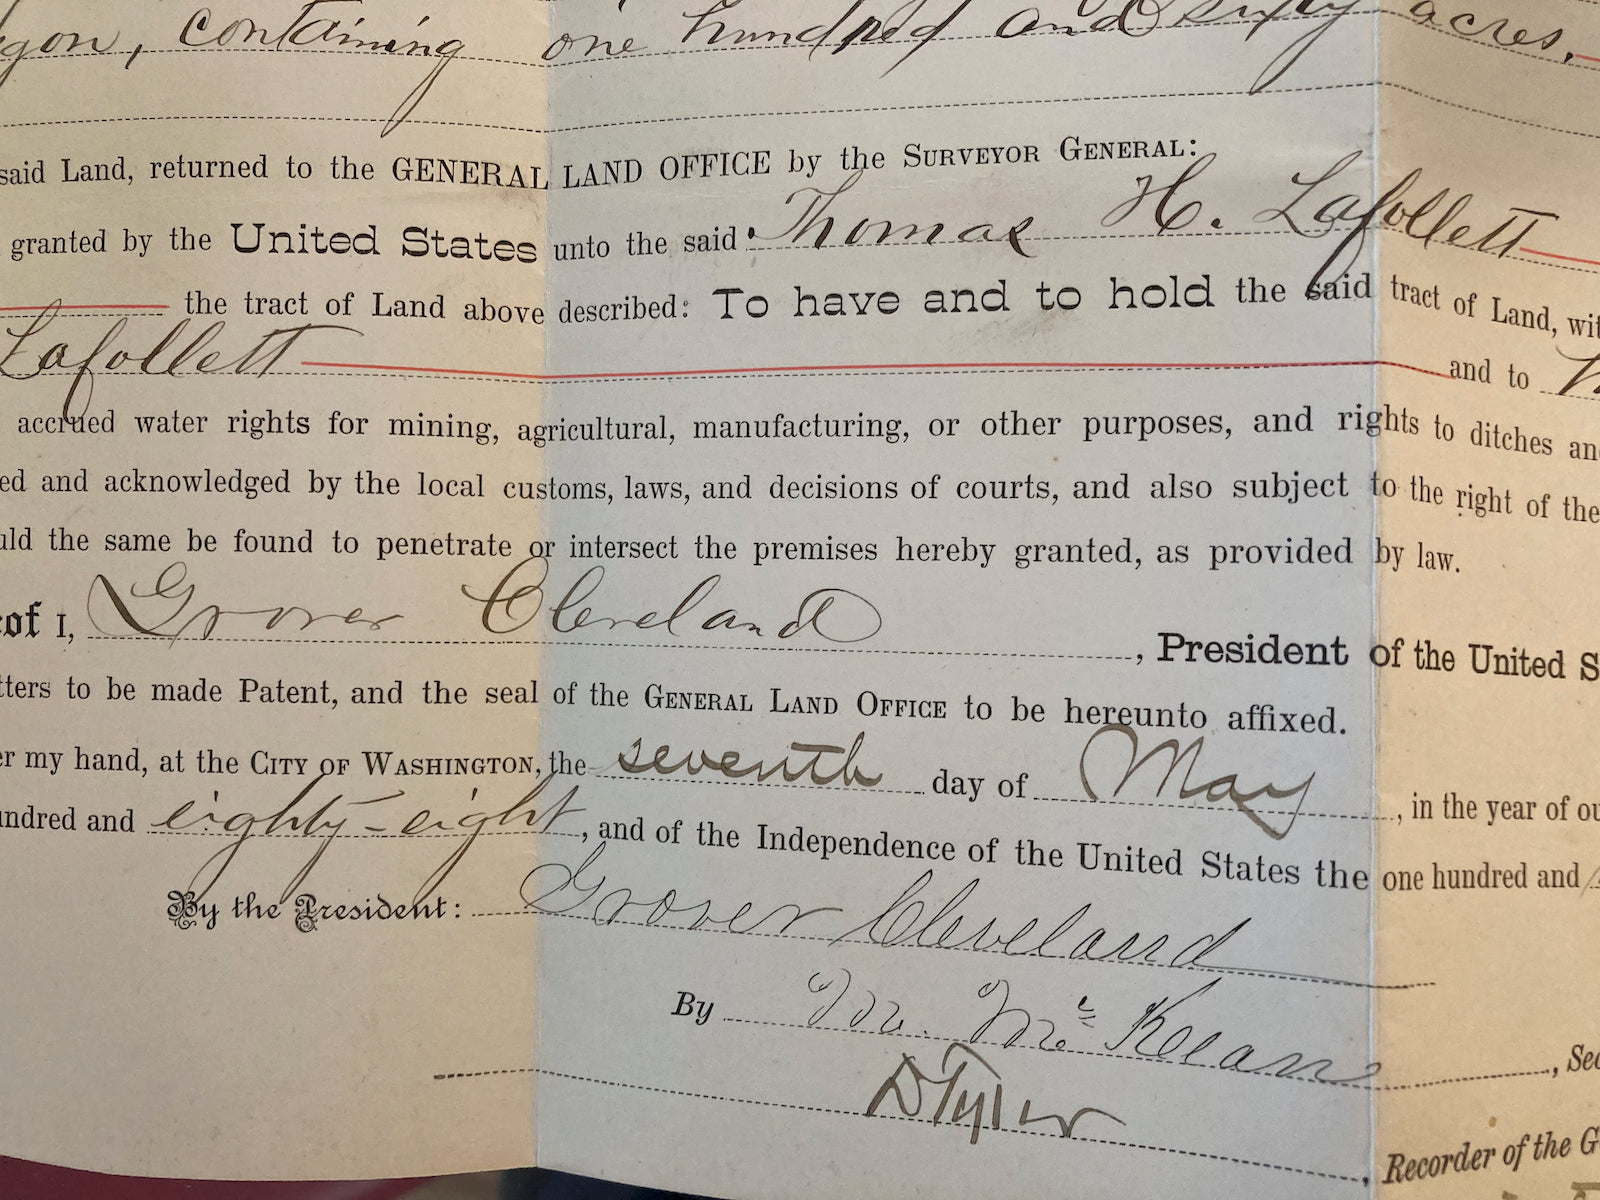 gon, containing one hundred and sixty acres,
said Land, returned to the GENERAL LAND OFFICE by the SURVEYOR GENERAL:
granted by the United States unto the said Thomas H. Lafollett
the tract of Land above described: To have and to hold the said tract of Land, wit
Lafollett and to
accrued water rights for mining, agricultural, manufacturing, or other purposes, and rights to ditches an
ed and acknowledged by the local customs, laws, and decisions of courts, and also subject to the right of the
uld the same be found to penetrate or intersect the premises hereby granted, as provided by law.
eof I, Grover Cleveland, President of the United S
tters to be made Patent, and the seal of the GENERAL LAND OFFICE to be hereunto affixed.
er my hand, at the CITY OF WASHINGTON, the seventh day of May, in the year of ou
undred and eighty-eight, and of the Independence of the United States the one hundred and
By the President: Grover Cleveland
By M. McKean, Sec
D Tyler
Recorder of the G